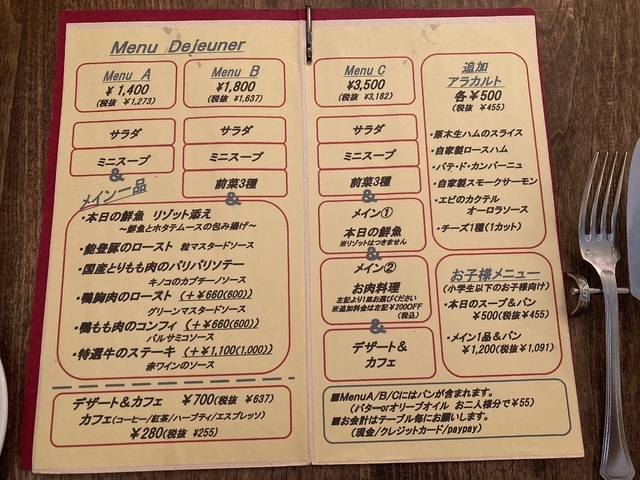 Menu Dejeuner
Menu A
¥1,400
(税抜 ¥1,273)
サラダ
ミニスープ
&
Menu B
¥1,800
(税抜 ¥1,637)
サラダ
ミニスープ
前菜3種
&
メイン一品
・本日の鮮魚 リゾット添え
～鮮魚とホタテムースの包み揚げ～
・能登豚のロースト 粒マスタードソース
・国産とりもも肉のパリパリソテー
キノコのカプチーノソース
・鴨胸肉のロースト (+¥660(600))
グリーンマスタードソース
・鴨もも肉のコンフィ (+¥660(600))
バルサミコソース
・特選牛のステーキ (+¥1,100(1,000))
赤ワインのソース
デザート&カフェ ¥700(税抜 ¥637)
カフェ(コーヒー/紅茶/ハーブティ/エスプレッソ)
¥280(税抜 ¥255)
Menu C
¥3,500
(税抜 ¥3,182)
サラダ
ミニスープ
前菜3種
&
メイン①
本日の鮮魚
※リゾットはつきません
&
メイン②
お肉料理
左記より1皿お選びください
※追加料金は左記¥200OFF
(税込)
&
デザート&
カフェ
追加
アラカルト
各¥500
(税抜 ¥455)
・原木生ハムのスライス
・自家製ロースハム
・パテ・ド・カンパーニュ
・自家製スモークサーモン
・エビのカクテル
オーロラソース
・チーズ1種(1カット)
お子様メニュー
(小学生以下のお子様向け)
・本日のスープ&パン
¥500(税抜¥455)
・メイン1品&パン
¥1,200(税抜¥1,091)
■MenuA/B/Cにはパンが含まれます。
(バターorオリーブオイル お二人様分で¥55)
■お会計はテーブル毎にお願いします。
(現金/クレジットカード/paypay)